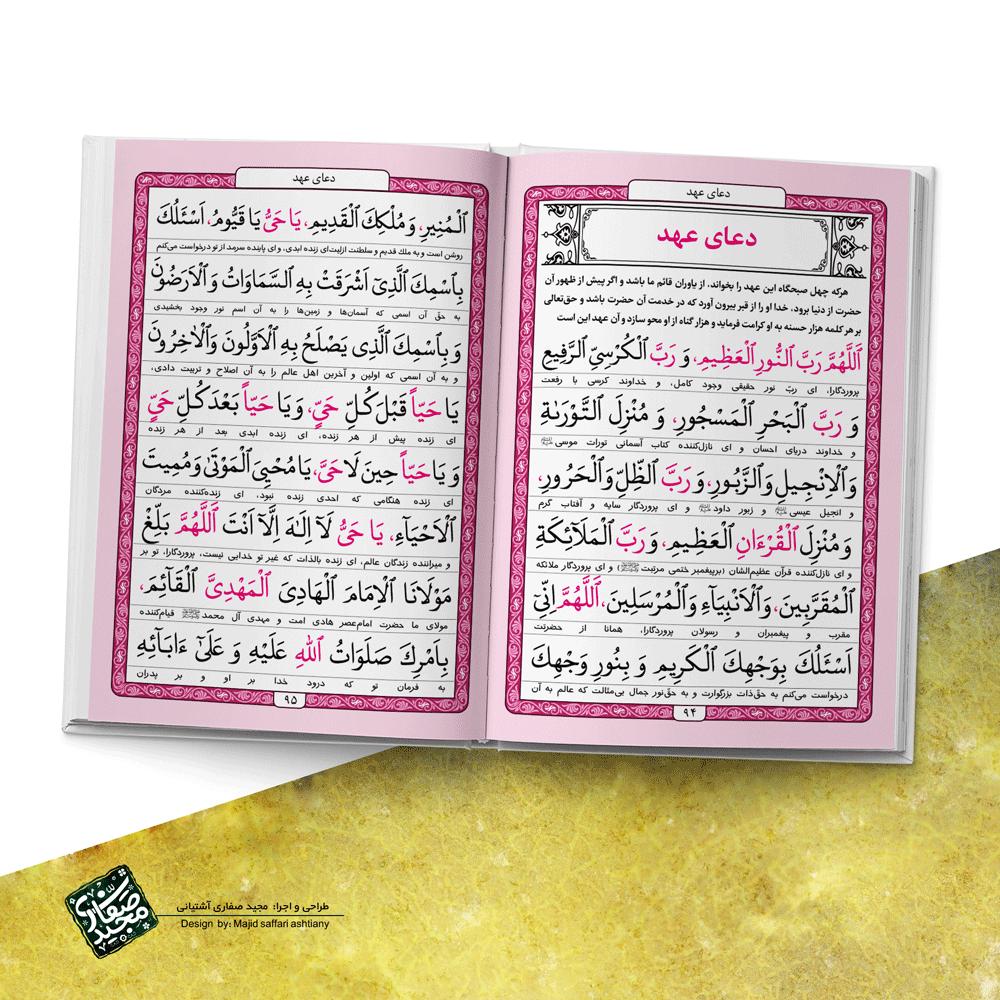 دعای عهد
دعای عهد
هرکه چهل صبحگاه این عهد را بخواند، از یاوران قائم ما باشد و اگر پیش از ظهور آن
حضرت از دنیا برود، خدا او را از قبر بیرون آورد که در خدمت آن حضرت باشد و حق‌تعالی
بر هر کلمه هزار حسنه به او کرامت فرماید و هزار گناه از او محو سازد و آن عهد این است
اَللّٰهُمَّ رَبَّ النُّورِ الْعَظِیمِ، وَ رَبَّ الْکُرْسِیِّ الرَّفِیعِ
پروردگارا، ای ربّ نور حقیقی وجود کامل، و خداوند کرسی با رفعت
وَ رَبَّ الْبَحْرِ الْمَسْجُورِ، وَ مُنْزِلَ التَّوْرَىٰةِ
و خداوند دریای احسان و ای نازل‌کننده کتاب آسمانی تورات موسی
وَالْاِنْجِیلِ وَالزَّبُورِ، وَ رَبَّ الظِّلِّ وَالْحَرُورِ،
و انجیل عیسی و زبور داود و ای پروردگار سایه و آفتاب گرم
وَ مُنْزِلَ الْقُرْءَانِ الْعَظِیمِ، وَ رَبَّ الْمَلَآئِکَةِ
و ای نازل‌کننده قرآن عظیم‌الشان (برپیغمبر ختمی مرتبت ﷺ) و ای پروردگار ملائکه
الْمُقَرَّبِینَ، وَالْاَنْبِیَآءِ وَالْمُرْسَلِینَ، اَللّٰهُمَّ اِنّٖی
مقرب و پیغمبران و رسولان پروردگارا، همانا از حضرتت
اَسْئَلُكَ بِوَجْهِكَ الْکَرِیمِ وَ بِنُورِ وَجْهِكَ
درخواست می‌کنم به حق‌ذات بزرگوارت و به حق‌نور جمال بی‌مثالت که عالم به آن
۹۴
دعای عهد
الْمُنِیرِ، وَ مُلْكِكَ الْقَدِیمِ، یَا حَیُّ یَا قَیُّومُ، اَسْئَلُكَ
روشن است و به ملك قدیم و سلطنت ازلیت‌ای زنده ابدی، و ای پاینده سرمد از تو درخواست می‌کنم
بِاسْمِكَ الَّذِیٓ اَشْرَقَتْ بِهِ السَّمَاوَاتُ وَ الْاَرَضُونَ
به حق آن اسمی که آسمان‌ها و زمین‌ها را به آن اسم نور وجود بخشیدی
وَ بِاسْمِكَ الَّذِی یَصْلَحُ بِهِ الْاَوَّلُونَ وَالْاٰخِرُونَ
و به آن اسمی که اولین و آخرین اهل عالم را به آن اصلاح و تربیت دادی،
یَا حَیّاً قَبْلَ کُلِّ حَیٍّ، وَ یَا حَیّاً بَعْدَ کُلِّ حَیٍّ
ای زنده پیش از هر زنده، ای زنده ابدی بعد از هر زنده
وَ یَا حَیّاً حِینَ لَا حَیَّ، یَا مُحْیِیَ الْمَوْتَیٰ وَ مُمِیتَ
ای زنده هنگامی که احدی زنده نبود، ای زنده‌کننده مردگان
الْاَحْیَآءِ، یَا حَیُّ لَآ اِلٰهَ اِلَّآ اَنْتَ اَللّٰهُمَّ بَلِّغْ
و میراننده زندگان عالم، ای زنده بالذات که غیر تو خدایی نیست، پروردگارا، تو بر
مَوْلَانَا الْاِمَامَ الْهَادِیَ الْمَهْدِیَّ الْقَآئِمَ،
مولای ما حضرت امام‌عصر هادی امت و مهدی آل محمد قیام‌کننده
بِاَمْرِكَ صَلَوَاتُ اللهِ عَلَیْهِ وَ عَلَیٰٓ ءَابَآئِهِ
به فرمان تو که درود خدا بر او و بر پدران
۹۵
مجید صفاری
طراحی و اجرا: مجید صفاری آشتیانی
Design by: Majid saffari ashtiany